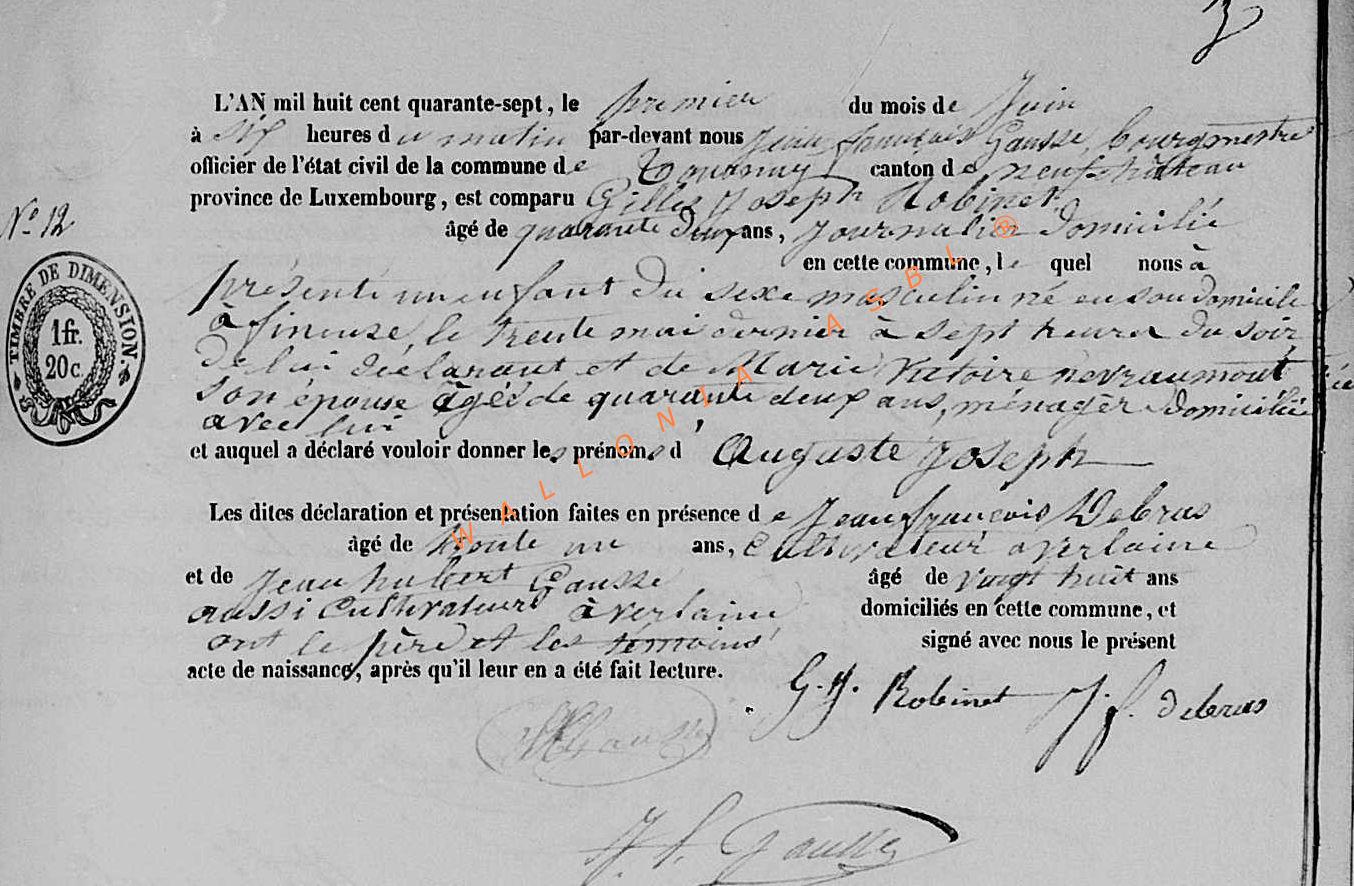 3
L'AN mil huit cent quarante-sept, le premier du mois de Juin
à Six heures du matin par-devant nous Jean françois Gausse, bourgmestre
officier de l'état civil de la commune de Tournay canton de neufchâteau
province de Luxembourg, est comparu Gilles Joseph Robinet
N° 12
âgé de quarante deux ans, Journalier Domicilié
en cette commune, le quel nous à
présenté un enfant du sexe masculin né en son domicile
à fineuse, le trente mai dernier à sept heures du soir
de lui déclarant et de Marie Victoire nevraumont
son épouse âgée de quarante deux ans, ménagèr Domiciliée
avec lui
et auquel a déclaré vouloir donner les prénoms d' Auguste Joseph
Les dites déclaration et présentation faites en présence de Jean françois Debras
âgé de trente un ans, Cultivateur a verlaine
et de Jean hubert Gausse âgé de vingt huit ans
aussi Cultivateur à verlaine domiciliés en cette commune, et
ont le père et les temoins signé avec nous le présent
acte de naissance, après qu'il leur en a été fait lecture.
G. J. Robinet J. f. debras
Gausse
J. f. Gausse
TIMBRE DE DIMENSION.
1 fr.
20 c.
WALLONIA ASBL ®